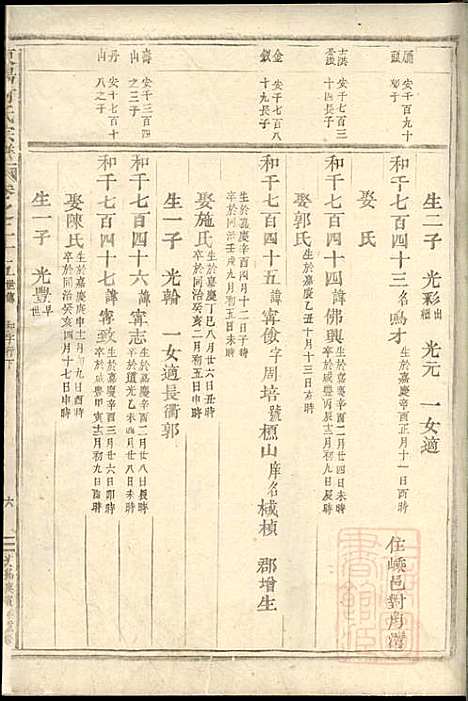 安千百九十
長子
安千七百三
十四長子
金
安千七百八
十九長子
安千三百四
之三子
丹
安千七百四
八之子
生二子 光彩出 光元 一女適
和千七百四十三名鳴才 生於嘉慶辛酉正月十一日酉時 住嵊邑對角灣
娶 氏
和千七百四十四諱佛興 生於嘉慶辛酉二月廿四日未時 卒於咸豐丙辰十月初九日戌時
娶郭氏 生於嘉慶乙丑十月十三日亥時
和千七百四十五諱寗儉字周培號樵山庠名棫楨 郡增生
生於嘉慶辛酉四月十二日子時
卒於同治壬戌九月初五日寅時
娶施氏 生於嘉慶丁巳八月廿六日丑時 卒於同治癸亥二月初五日申時
生一子 光翰 一女適長衢郭
和千七百四十六諱寗志 生於嘉慶辛酉二月廿八日辰時 卒於道光乙未二月廿八日未時
和千七百四十七諱寗致 生於嘉慶辛酉三月廿六日卯時 卒於咸豐甲寅十月初九日辰時
娶陳氏 生於嘉慶庚申十月初九日酉時 卒於同治癸亥四月十七日未時
生一子 光豐早世
和字行下
六